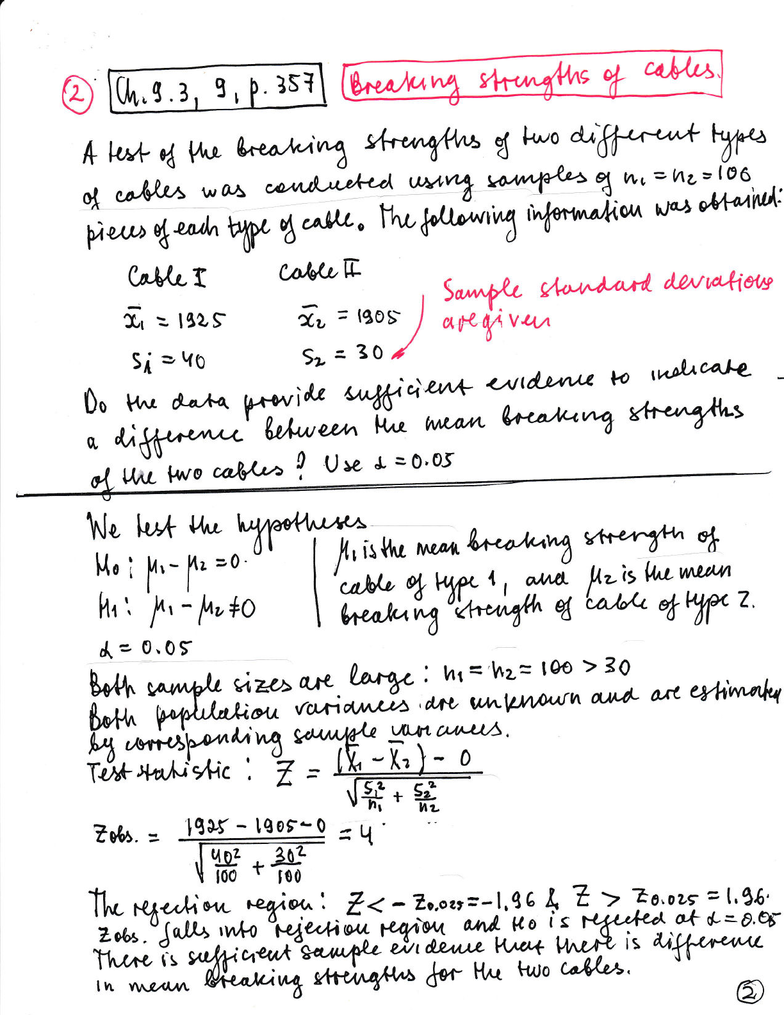 ② Ch. 9.3, 9, p. 357 Breaking strengths of cables.
A test of the breaking strengths of two different types
of cables was conducted using samples of n₁ = n₂ = 100
pieces of each type of cable. The following information was obtained:
Cable I Cable II
x̄₁ = 1925 x̄₂ = 1905
S₁ = 40 S₂ = 30
Sample standard deviations
are given
Do the data provide sufficient evidence to indicate
a difference between the mean breaking strengths
of the two cables? Use α = 0.05
We test the hypotheses
H₀: μ₁ - μ₂ = 0.
H₁: μ₁ - μ₂ ≠ 0
α = 0.05
μ₁ is the mean breaking strength of
cable of type 1, and μ₂ is the mean
breaking strength of cable of type 2.
Both sample sizes are large: n₁ = n₂ = 100 > 30
Both population variances are unknown and are estimated
by corresponding sample variances.
Test statistic: Z = ((X̄₁ - X̄₂) - 0) / √(S₁²/n₁ + S₂²/n₂)
Zobs. = (1925 - 1905 - 0) / √(40²/100 + 30²/100) = 4
The rejection region: Z < -Z0.025 = -1.96 & Z > Z0.025 = 1.96.
Zobs. falls into rejection region and H₀ is rejected at α = 0.05
There is sufficient sample evidence that there is difference
in mean breaking strengths for the two cables.
②